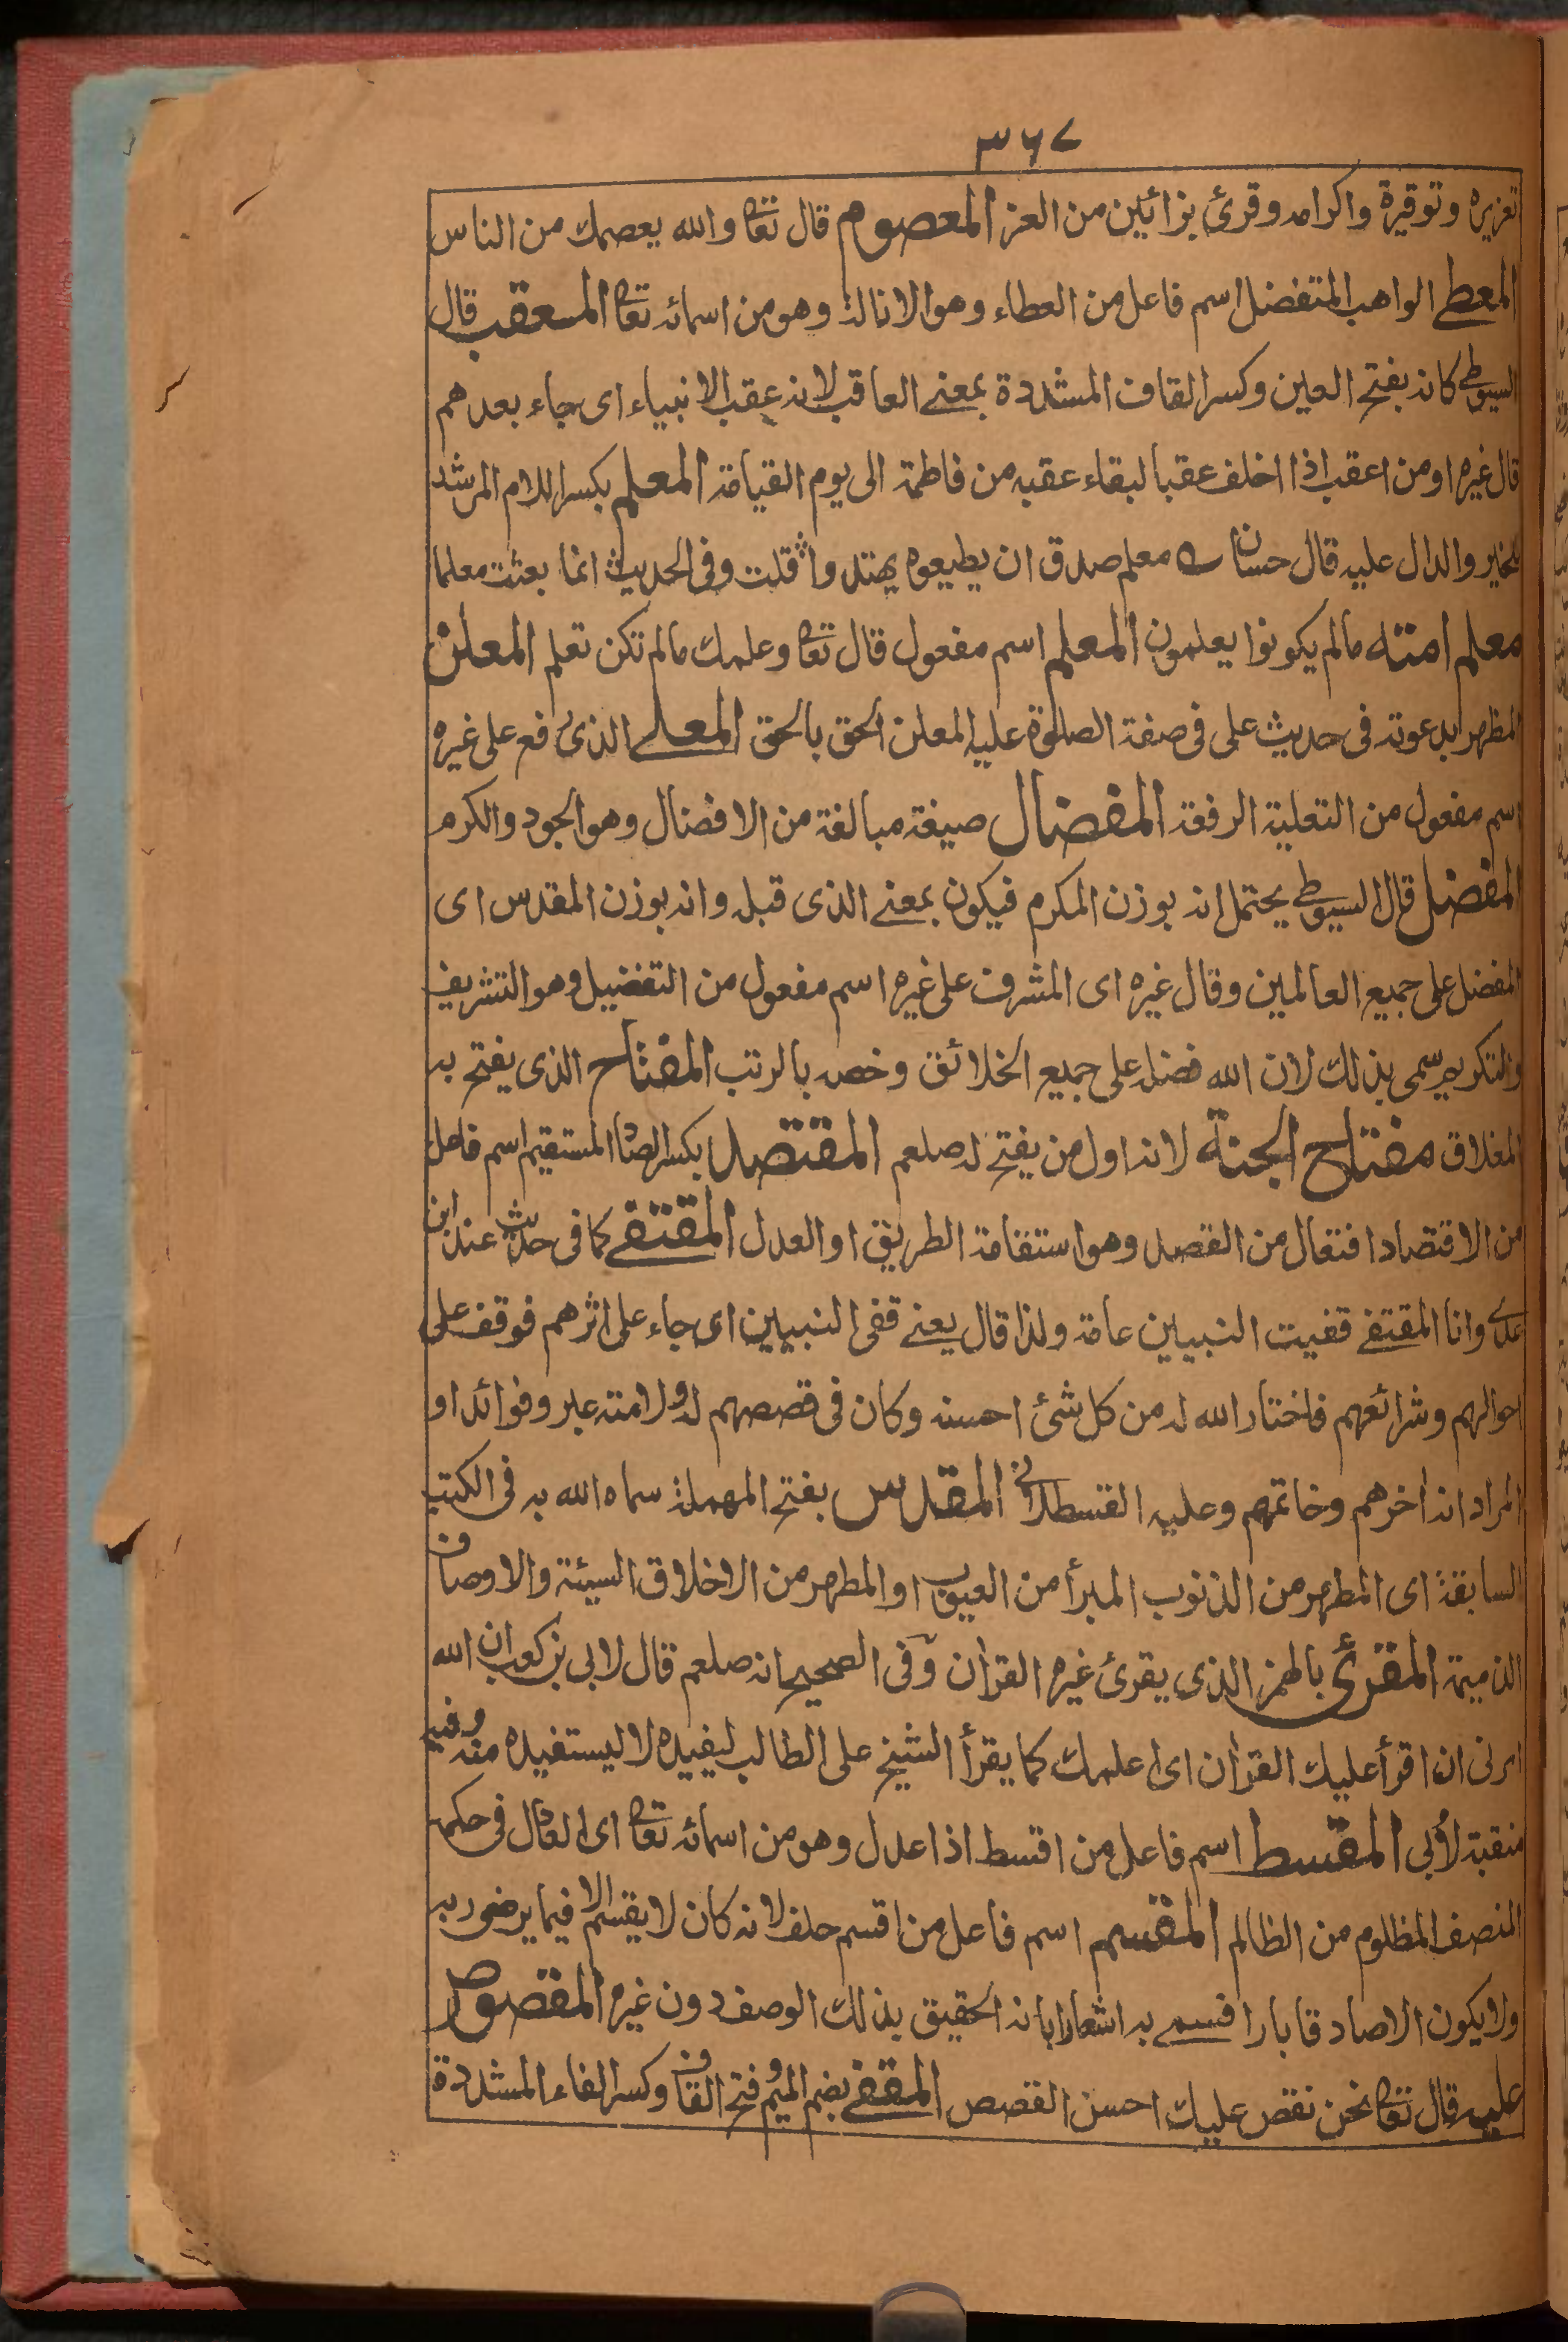 ٣٦٧
تعزيره وتوقيرة واكرامه وقرئ بزائين من العز المعصوم قال تعا والله يعصمك من الناس
المعطى الواهب المتفضل اسم فاعل من العطاء وهو الانالة وهو من اسمائه تعا المعقب قال
السيوطى كانه بفتح العين وكسر القاف المشددة بمعنى العاقب لانه عقب الانبياء اى جاء بعدهم
قال غيره او من اعقب اذا اخلف عقبا لبقاء عقبه من فاطمة الى يوم القيامة المعلم بكسر اللام المرشد
للخير والدال عليه قال حسان معلم صدق ان يطيعوه يهتدوا قلت وفى الحديث انما بعثت معلما
معلم امته مالم يكونوا يعلمون المعلم اسم مفعول قال تعا وعلمك مالم تكن تعلم المعلن
المظهر بدعوته فى حديث على فى صفة الصلوة عليه المعلن الحق بالحق المعلى الذى رفع على غيره
اسم مفعول من التعلية الرفعة المفضال صيغة مبالغة من الافضال وهو الجود والكرم
المفضل قال السيوطى يحتمل انه بوزن المكرم فيكون بمعنى الذى قبله وانه بوزن المقدس اى
المفضل على جميع العالمين وقال غيره اى المشرف على غيره اسم مفعول من التفضيل وهو التشريف
والتكريم سمى بذلك لان الله فضله على جميع الخلائق وخصه بالرتب المفتاح الذى يفتح به
المغلاق مفتاح الجنة لانه اول من يفتح له صلعم المقتصد بكسر الصاد المستقيم اسم فاعل
من الاقتصاد افتعال من القصد وهو استقامة الطريق او العدل المقتفى كما فى حديث عند ابن
عدى وانا المقتفى قفيت النبيين عامة ولذا قال يعنى قفى النبيين اى جاء على اثرهم فوقف على
احوالهم وشرائعهم فاختار الله له من كل شئ احسنه وكان فى قصصهم له ولامته عبر وفوائد او
المراد انه اخرهم وخاتمهم وعليه القسطلانى المقدس بفتح المهملة سماه الله به فى الكتب
السابقة اى المطهر من الذنوب المبرأ من العيوب او المطهر من الاخلاق السيئة والاوصاف
الذميمة المقرئ بالهمز الذى يقرئ غيره القران وفى الصحيح انه صلعم قال لابى بن كعب ان الله
امرنى ان اقرأ عليك القران اى اعلمك كما يقرأ الشيخ على الطالب ليفيده لا ليستفيده منه وفيه
منقبة لأبى المقسط اسم فاعل من اقسط اذا عدل وهو من اسمائه تعا اى العادل فى حكمه
المنصف المظلوم من الظالم المقسم اسم فاعل من اقسم حلف لانه كان لا يقسم الا فيما يرضى ربه
ولا يكون الا صادقا بارا فسمى به اشعارا بانه الحقيق بذلك الوصف دون غيره المقصوص
عليه قال تعا نحن نقص عليك احسن القصص المقفى بضم الميم وفتح القاف وكسر الفاء المشددة